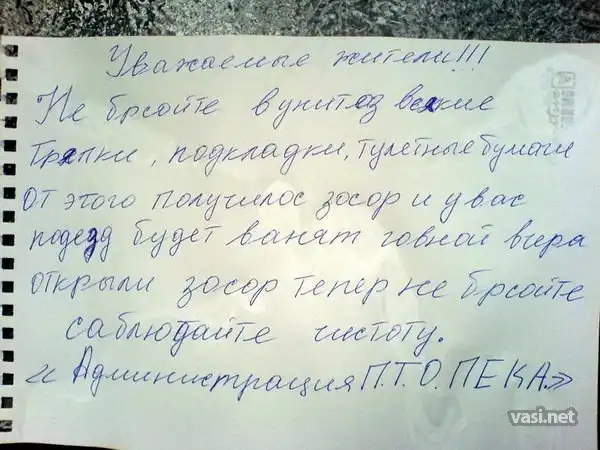 Уважаемые жители!!!
Не брсайте в унитоз всякие
Тряпки, подкладки, тулетные бумаги
от этого получилос зосор и у вас
подезд будет ванят говной вчера
открыли зосор тепер не брсайте
саблюдайте чистоту.
«Администрация П.Т.О. ПЕКА.»
vasi.net